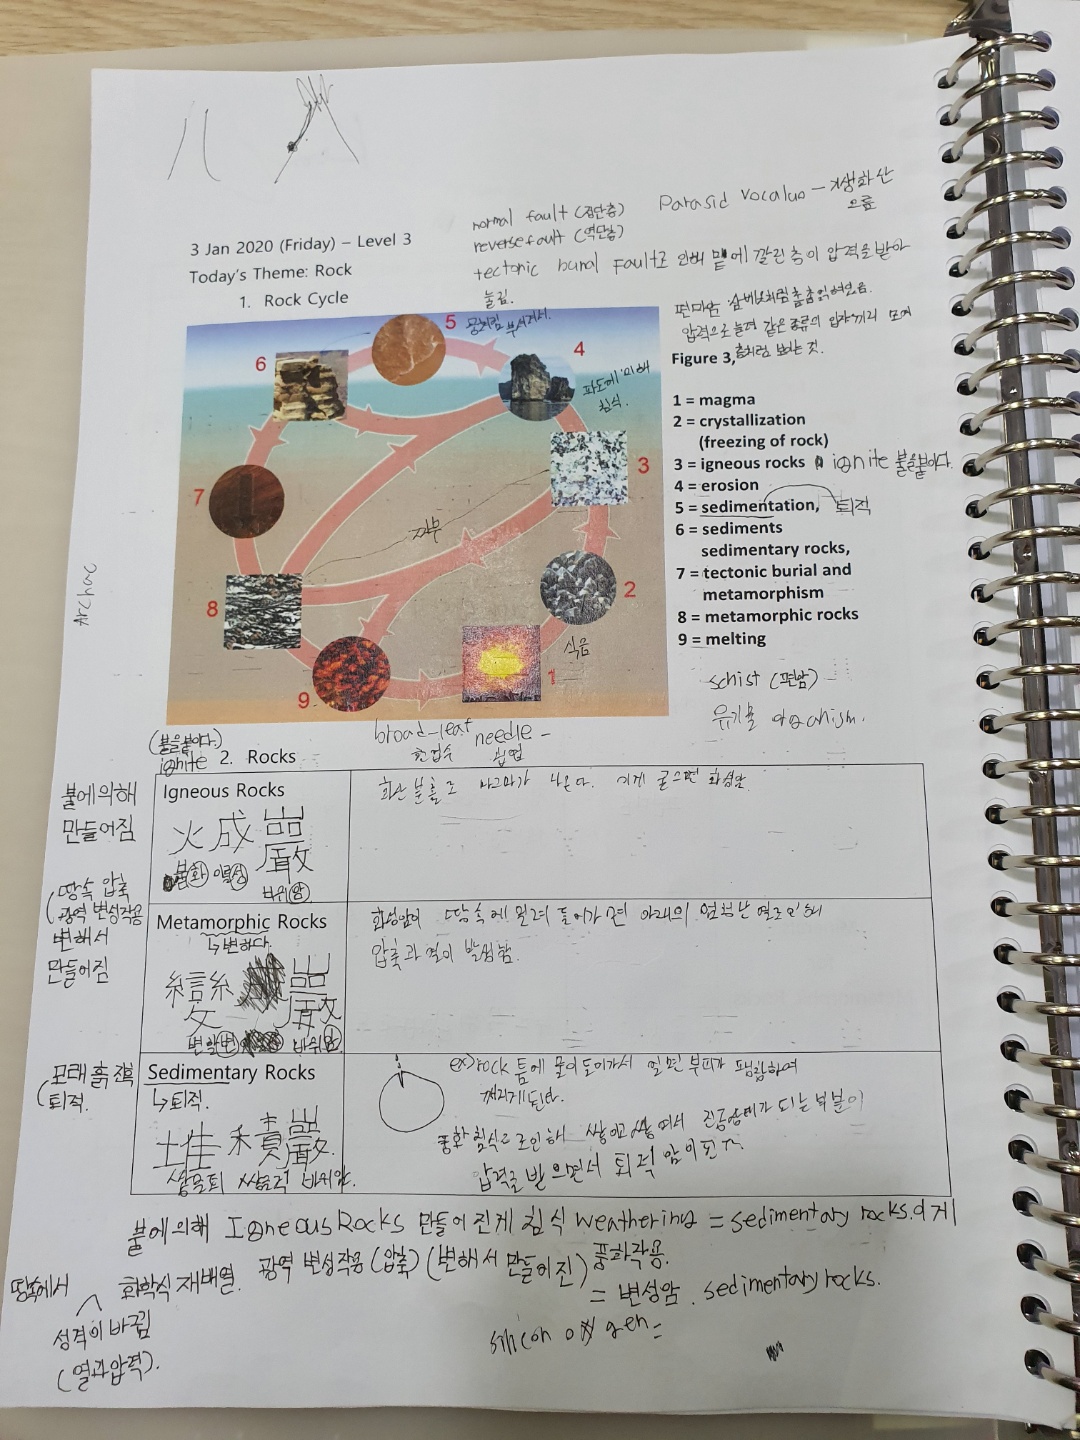 normal fault (정단층)
Parasid vocaluo – 기생화산
으름
reverse fault (역단층)
3 Jan 2020 (Friday) – Level 3
tectonic burial fault로 인해 밑에 깔린 층이 압력을 받아
눌림.
Today's Theme: Rock
1. Rock Cycle
편마암
압력으로 눌려 같은 종류의 입자끼리 모여
층처럼 보이는 것.
Figure 3,
1 = magma
2 = crystallization
(freezing of rock)
3 = igneous rocks ignite 불을붙이다.
4 = erosion
5 = sedimentation, 퇴적
6 = sediments
sedimentary rocks,
7 = tectonic burial and
metamorphism
8 = metamorphic rocks
9 = melting
5 부서져서.
6
4
파도에 의해
침식.
3
7
2
8
식음
9
1
schist (편암) –
유기물 organism.
broad-leaf needle –
활엽수 침엽
(불을붙이다.)
ignite 2. Rocks
불에의해
만들어짐
Igneous Rocks
火成巖
불화 이룰성
바위암
화산 분출로 마그마가 나온다. 이게 굳으면 화성암
(땅속 압축
광역 변성작용
변해서
만들어짐
Metamorphic Rocks
↳변하다.
變 巖
변할변 바위암
화성암이 땅속에 밀려 들어가면 아래의 엄청난 열로 인해
압축과 열이 발생함.
(모래 흙 자갈
퇴적.
Sedimentary Rocks
↳퇴적.
堆積巖.
쌓을퇴 쌓을적 바위암.
ex)rock 틈에 물이 들어가서 얼면 부피가 팽창하여
깨지게 된다.
풍화 침식으로 인해 쌓이고 쌓여서 진공상태가 되는 부분이
압력을 받으면서 퇴적암이 된다.
불에의해 Igneous Rocks 만들어진게 침식 weathering = sedimentary rocks.
풍화작용.
땅속에서 화학식 재배열. 광역 변성작용 (압축) (변해서 만들어진)
= 변성암. sedimentary rocks.
성격이 바뀜
(열과압력).
silicon oxygen =